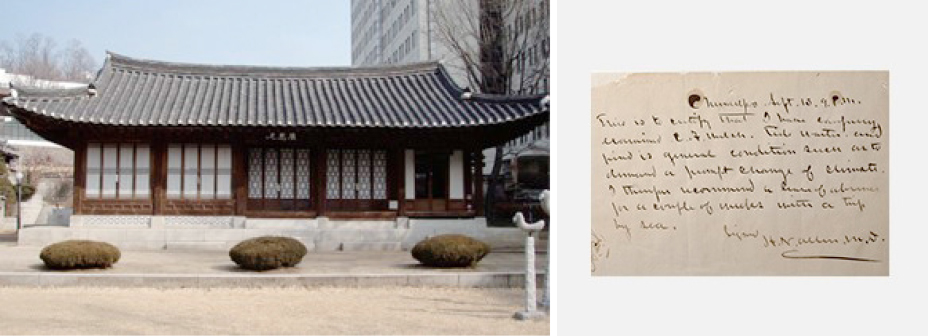 Chemulpo Sept. 13.
This is to certify that I have carefully
examined C. F. and
find general condition such as to
demand a prompt change of climate.
I recommend a leave of absence
for a couple of weeks with a trip
by sea.
H. N. Allen, M.D.